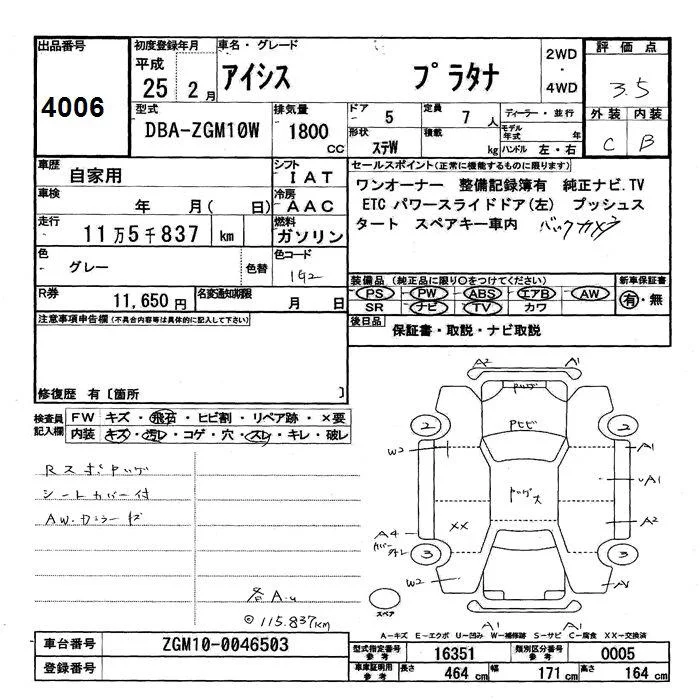 出品番号
4006
初度登録年月
平成
25 2月
車名・グレード
アイシス プラタナ
2WD
・
4WD
評価点
3.5
外装 内装
C B
型式
DBA-ZGM10W
排気量
1800
CC
ドア 5
形状 ステW
定員 7 人
積載 kg
ディーラー・並行
モデル年式 年
ハンドル 左・右
車歴
自家用
シフト
IAT
車検
年 月( 日)
冷房
AAC
走行
11万5千837 km
燃料
ガソリン
色
グレー
色替
色コード
1G2
R券
11,650円
名変通知期限
月 日
セールスポイント(正常に機能するものに限ります)
ワンオーナー 整備記録簿有 純正ナビ.TV
ETC パワースライドドア(左) プッシュス
タート スペアキー車内 バックカメラ
装備品 (純正品に限り○をつけてください)
新車保証書
PS PW ABS エアB AW
SR ナビ TV カワ
有・無
後日品
保証書・取説・ナビ取説
注意事項申告欄(不具合内容等は具体的に記入して下さい)
修復歴 有〔箇所 〕
検査員
記入欄
FW キズ・飛石・ヒビ割・リペア跡・×要
内装 キズ・汚レ・コゲ・穴・スレ・キレ・破レ
シートカバー付
各A.u
◎115.837km
A2 A1
2 2
ドビビ
W2 A1
A1
XX A2
A4
3 3
W2
スペア
A1 A1
A-キズ E-エクボ U-凹み W-補修跡 S-サビ C-腐食 XX-交換済
車台番号
ZGM10-0046503
登録番号
型式指定番号 参考
16351
類別区分番号 参考
0005
車庫証明用 参考
長さ 464 cm 幅 171 cm 高さ 164 cm